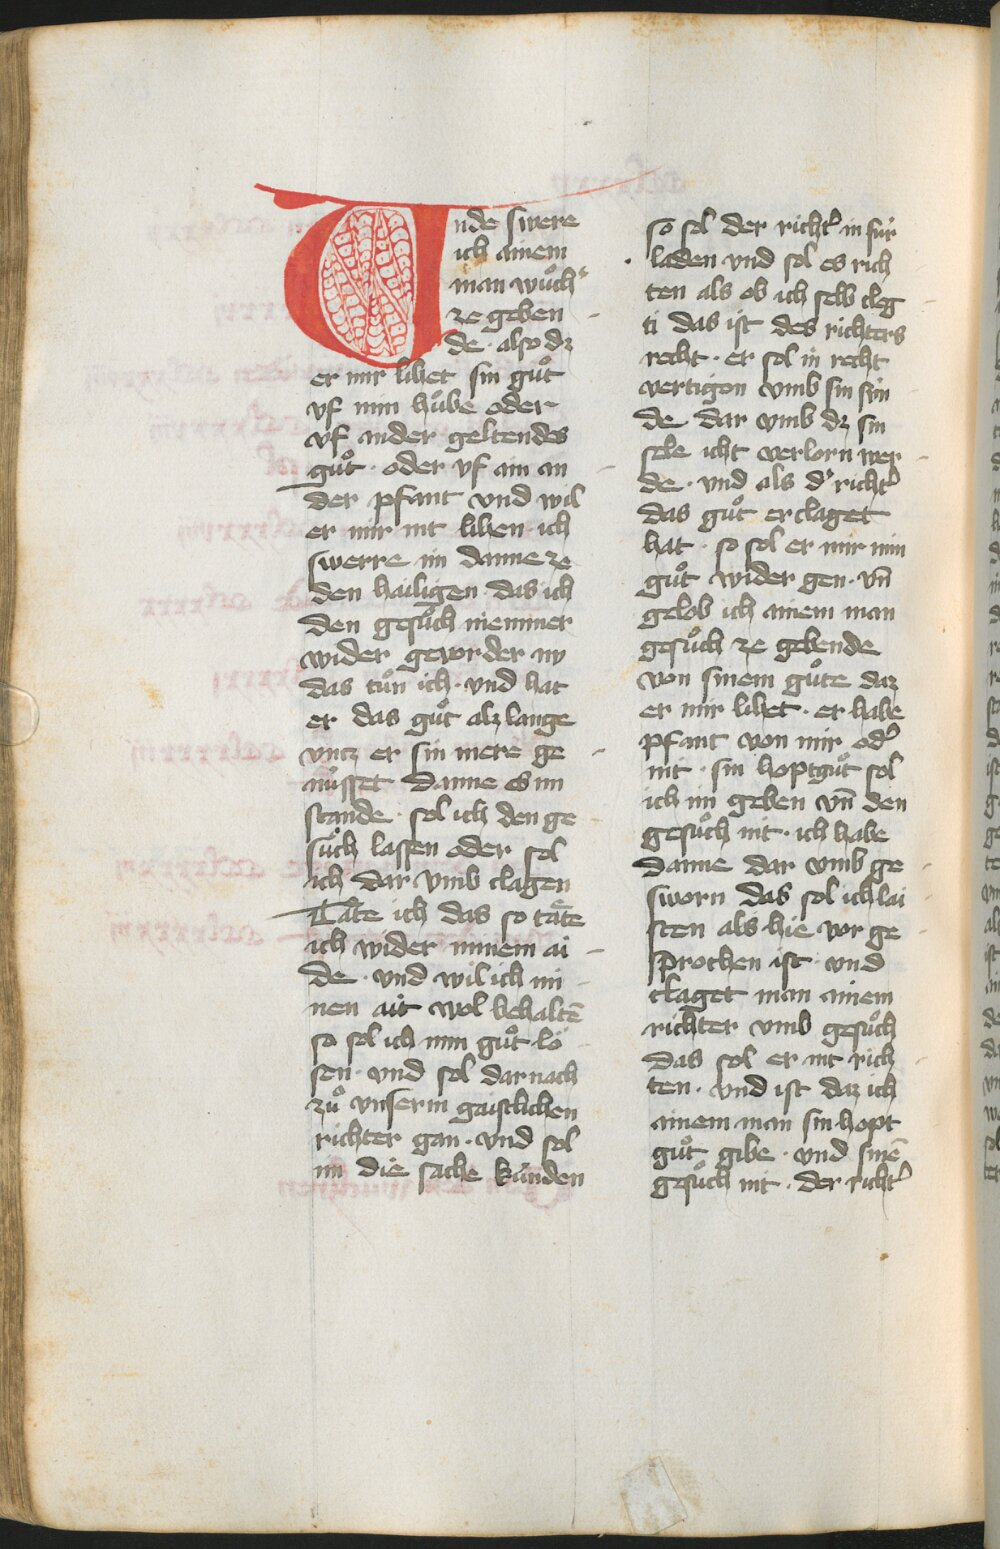 Vnde swere
ich ainem
man wuͦch᷑
ze geben
de · also dz
er mir lihet sin guͦt
vf min huͦbe oder
vf ander geltendes
guͦt · oder vf ain an
der pfant vnd wil
er mir nit lihen · ich
swerre im danne ze
den hailigen das ich
den gesuͦch niemmer
wider gevorder ny
das tuͦn ich · vnd hat
er das guͦt alz lange
vncz er sin mere ge
nússet danne es im
stande · sol ich den ge
suͦch lassen oder sol
ich dar vmb clagen
Taͤte ich das so taͤte
ich wider minem ai
de · vnd wil ich mi
nen ait wol behaltē
so sol ich min guͦt lö
sen · vnd sol dar nach
zuͦ vnserm gaistlichen
richter gan · vnd sol
im die sache kúnden
so sol der richt᷑ in fúr
laden vnd sol es rich
ten als ob ich selb cleg
ti das ist des richters
recht · er sol in recht
vertigon vmb sin sún
de dar vmb dz sin
sele icht verlorn wer
de · vnd als d᷑ richt᷑
das guͦt erclaget
hat · so sol er mir min
guͦt wider gen · vn̄
gelob ich ainem man
gesuͦch ze gebende
von sinem guͦte daz
er mir lihet · er habe
pfant von mir od᷑
nit · sin hoptguͦt sol
ich im geben vn̄ den
gesuͦch nit · ich habe
danne dar vmb ge
sworn das sol ich lai
sten als hie vor ge
sprochen ist · vnd
claget man ainem
richter vmb gesuͦch
das sol er nit rich
ten · vnd ist daz ich
ainem man sin hopt
guͦt gibe · vnd sinē
gesuͦch nit · der richt᷑